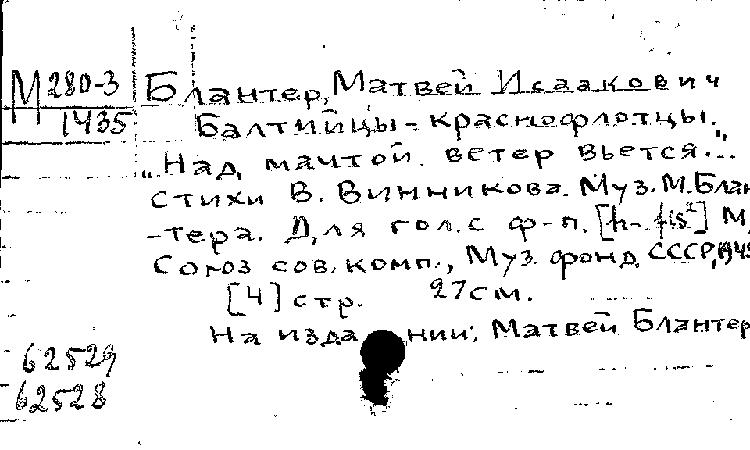 М 280-3 Блантер, Матвей Исаакович
1435 Балтийцы-краснофлотцы.
„Над мачтой ветер вьется..."
стихи В. Винникова. Муз. М. Блан-
-тера. Для гол. с ф-п. [h-fis²] М.,
Союз сов. комп., Муз. фонд СССР,
[4] стр. 27 см.
На издании: Матвей Блантер
62529
62528